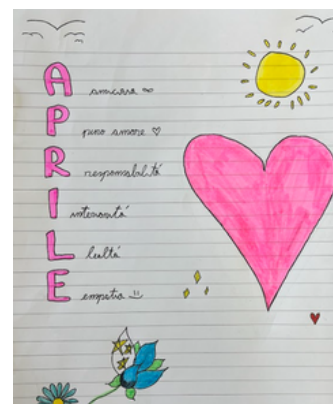 A amicizia ∞
P pieno amore ♡
R responsabilità
I intensità
L lealtà
E empatia :)